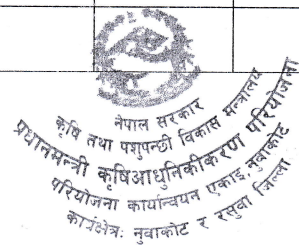 नेपाल सरकार
कृषि तथा पशुपन्छी विकास मन्त्रालय
प्रधानमन्त्री कृषि आधुनिकीकरण परियोजना
परियोजना कार्यान्वयन एकाइ, नुवाकोट
कार्यक्षेत्र: नुवाकोट र रसुवा जिल्ला